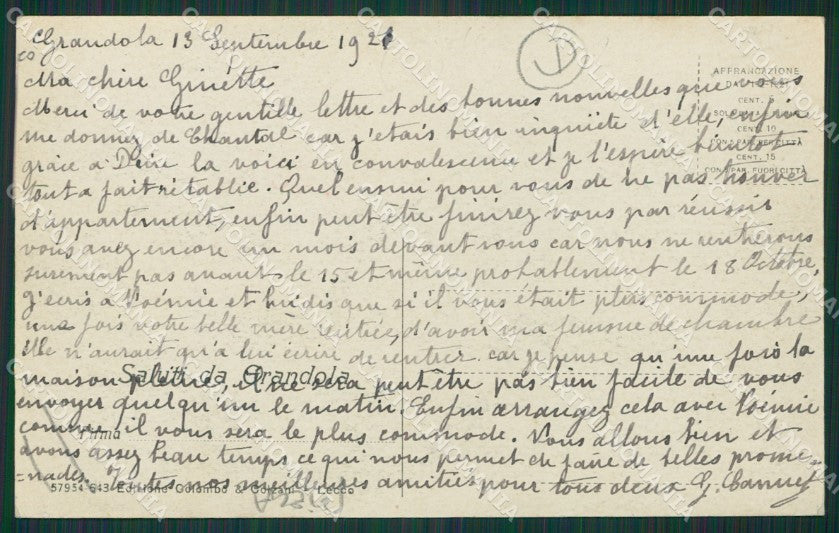 Grandola 13 Septembre 1921
Ma chère Ginette
Merci de votre gentille lettre et des bonnes nouvelles que vous
me donnez de Chantal car j'etais bien inquiète d'elle, enfin
grâce à Dieu la voici en convalescence et je l'espère bientôt
tout a fait rétablie. Quel ennui pour vous de ne pas trouver
d'appartement, enfin peut être finirez vous par réussir
vous avez encore un mois devant vous car nous ne rentrerons
surement pas avant le 15 et même probablement le 18 Octobre,
J'ecris a Noémie et lui dis que si il vous était plus commode,
une fois votre belle mère rentrée, d'avoir ma femme de chambre
Elle n'aurait qu'a lui écrire de rentrer car je pense qu'une fois la
maison pleine, sera peut être pas bien facile de vous
envoyer quelqu'un le matin. Enfin arrangez cela avec Noémie
comme il vous sera le plus commode. Vous allons bien et
avons assez beau temps ce qui nous permet de faire de belles prome-
=nades. toutes nos meilleures amitiés pour tous deux G.
AFFRANCAZIONE
CENT. 5
CENT. 10
CENT. 15
CON FIRMA FUORI CITTÀ
Saluti da Grandola
Firma
57954 643 Editions Colombo & Lecco
CARTOLINOMANIA